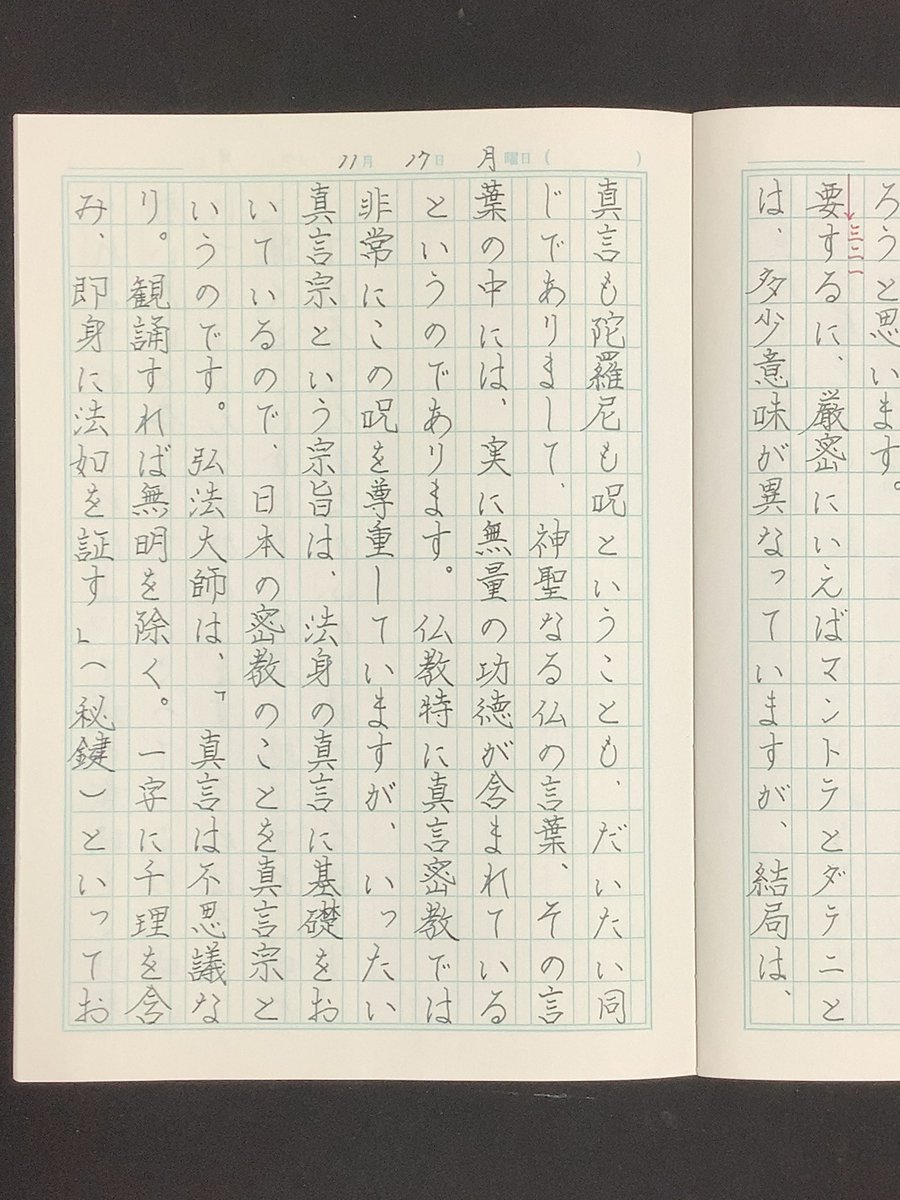 ろうと思います。
要するに、厳密にいえばマントラとダラニと
は、多少意味が異なっていますが、結局は、
11月 17日 月曜日( )
真言も陀羅尼も呪ということも、だいたい同
じでありまして、神聖なる仏の言葉、その言
葉の中には、実に無量の功徳が含まれている
というのであります。仏教特に真言密教では
非常にこの呪を尊重していますが、いったい
真言宗という宗旨は、法身の真言に基礎をお
いているので、日本の密教のことを真言宗と
いうのです。弘法大師は、「真言は不思議な
り。観誦すれば無明を除く。一字に千理を含
み、即身に法如を証す」(秘鍵)といってお